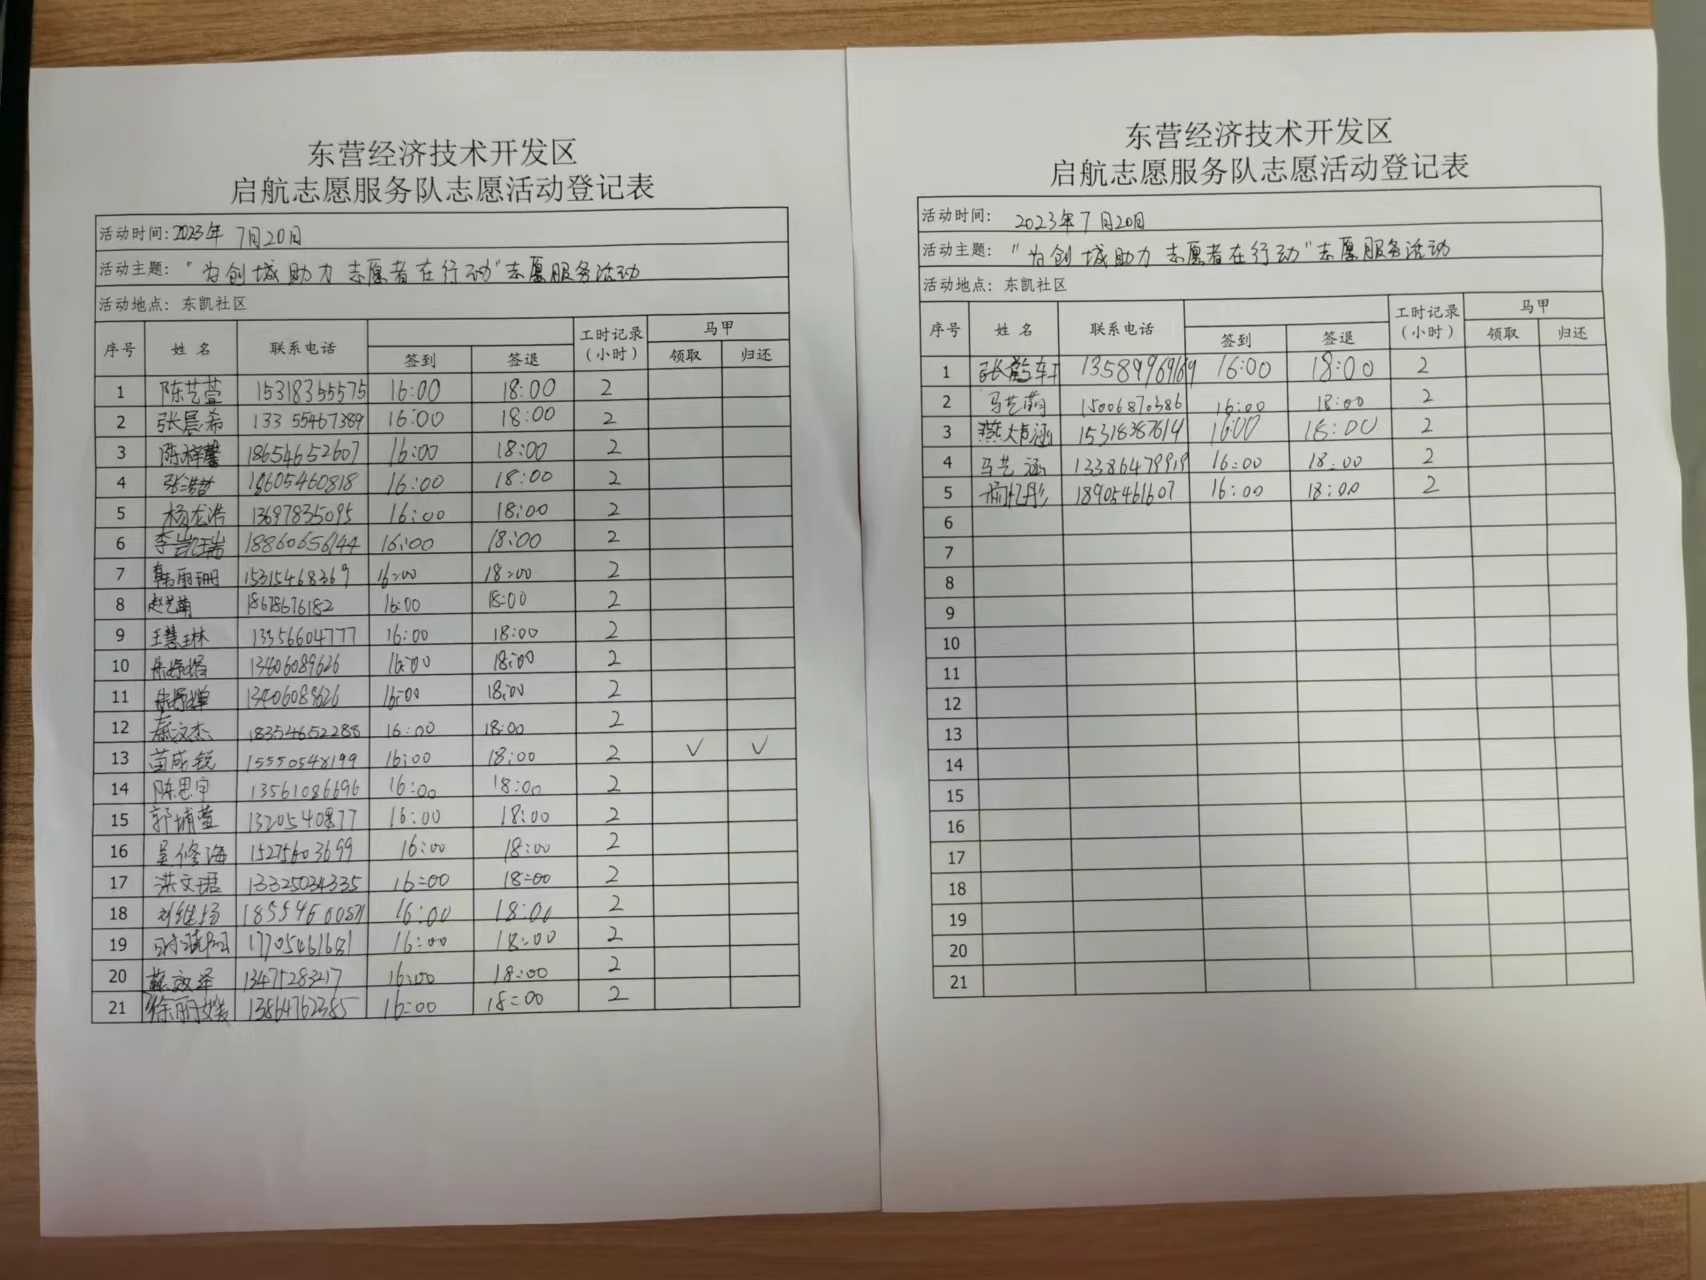 东营经济技术开发区
启航志愿服务队志愿活动登记表
活动时间:2023年 7月20日
活动主题:"为创城助力 志愿者在行动"志愿服务活动
活动地点: 东凯社区
序号 姓名 联系电话 签到 签退 工时记录(小时) 马甲 领取 归还
1 陈艺萱 15318355575 16:00 18:00 2
2 张晨希 13355467389 16:00 18:00 2
3 陈祥馨 18654652607 16:00 18:00 2
4 18605460818 16:00 18:00 2
5 杨龙浩 13697835095 16:00 18:00 2
6 李凯瑞 18860656144 16:00 18:00 2
7 韩雨珊 15315468369 16:00 18:00 2
8 赵艺萌 18678676182 16:00 18:00 2
9 王慧琳 13356604777 16:00 18:00 2
10 13406089626 16:00 18:00 2
11 13406089626 16:00 18:00 2
12 18354652288 16:00 18:00 2
13 苗成锐 15550548199 16:00 18:00 2 √ √
14 陈思宇 13561086696 16:00 18:00 2
15 郭埔萱 1320540877 16:00 18:00 2
16 吴修海 15275603699 16:00 18:00 2
17 洪文珺 13325034335 16:00 18:00 2
18 刘维扬 16:00 18:00 2
19 17705461681 16:00 18:00 2
20 13475283217 16:00 18:00 2
21 徐丽媛 13864762385 16:00 18:00 2
东营经济技术开发区
启航志愿服务队志愿活动登记表
活动时间: 2023年7月20日
活动主题:"为创城助力 志愿者在行动"志愿服务活动
活动地点: 东凯社区
序号 姓名 联系电话 签到 签退 工时记录(小时) 马甲 领取 归还
1 13589969169 16:00 18:00 2
2 马艺萌 15006870386 16:00 18:00 2
3 15318387614 16:00 18:00 2
4 马艺涵 13386479919 16:00 18:00 2
5 18905461607 16:00 18:00 2
6
7
8
9
10
11
12
13
14
15
16
17
18
19
20
21